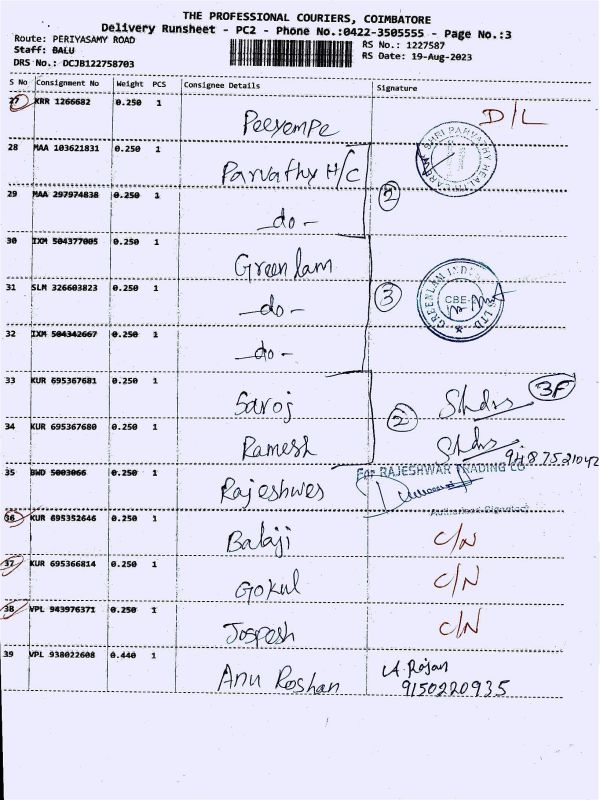 THE PROFESSIONAL COURIERS, COIMBATORE
Delivery Runsheet - PC2 - Phone No.:0422-3505555 - Page No.:3
Route: PERIYASAMY ROAD
RS No.: 1227587
Staff: BALU
RS Date: 19-Aug-2023
DRS No.: DCJB122758703
S No Consignment No Weight PCS Consignee Details Signature
27 KRR 1266682 0.250 1
Peeyempe D/L
28 MAA 103621831 0.250 1
Parvathy H/C
SHRI PARVATHY HEALTH
29 MAA 297974838 0.250 1
2
-do-
30 IXM 504377005 0.250 1
Greenlam
31 SLM 326603823 0.250 1
3
GREENLAM LTD
CBE-
-do-
32 IXM 504342667 0.250 1
-do-
33 KUR 695367681 0.250 1
3F
Saroj
2
34 KUR 695367680 0.250 1
Ramesh
9487521042
35 BWD 5003066 0.250 1
For RAJESHWAR TRADING CO
Rajeshwes
Authorised Signatory
36 KUR 695352646 0.250 1
Balaji C/N
37 KUR 695366814 0.250 1
Gokul C/N
38 VPL 943976371 0.250 1
Jospesh C/N
39 VPL 938022608 0.440 1
Anu Roshan A. Rojan
9150220935